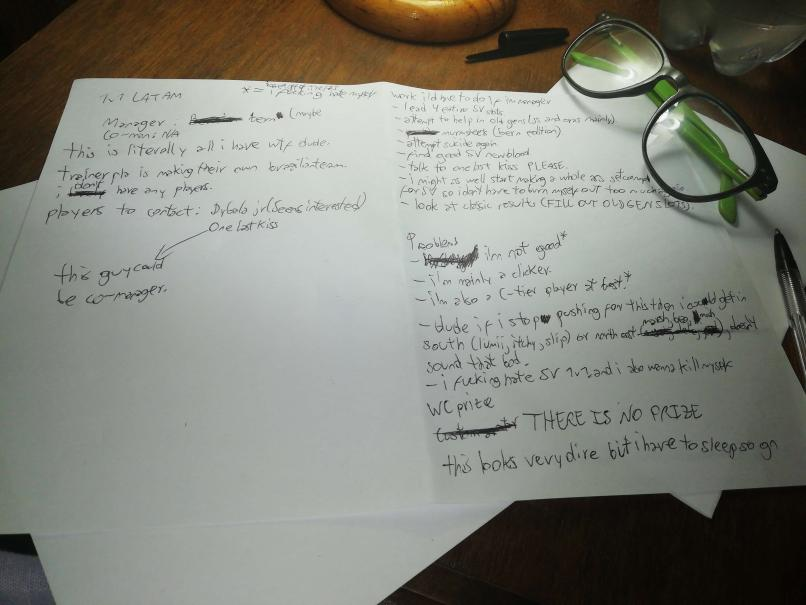 1v1 LATAM
* = i fucking hate myself
Manager: tem (maybe
co-man: NA
this is literally all i have wtf dude.
trainer pla is making their own brazil team.
i don't have any players.
players to contact: Dybala jr (Seems interested)
One last kiss
this guy could
be co-manager.
work i'd have to do if im manager
- lead 4 entire SV slots
- attempt to help in old gens (ss and oras mainly)
- murnsheek (born edition)
- attempt suicide again
- find good SV newblood
- talk to one last kiss PLEASE.
- i might as well start making a whole ass
for SV so i dont have to burn myself out too much
- look at classic results (FILL OUT OLD GEN SLOTS).
Problems
- i'm not good*
- i'm mainly a clicker.
- i'm also a C-tier player at best.*
- dude if i stop pushing for this then i could get in
south (lumii, itchy, slip) or north east doesn't
sound that bad.
- i fucking hate SV 1v1 and i also wanna kill myself
WC prize
THERE IS NO PRIZE
this looks very dire but i have to sleep so gn